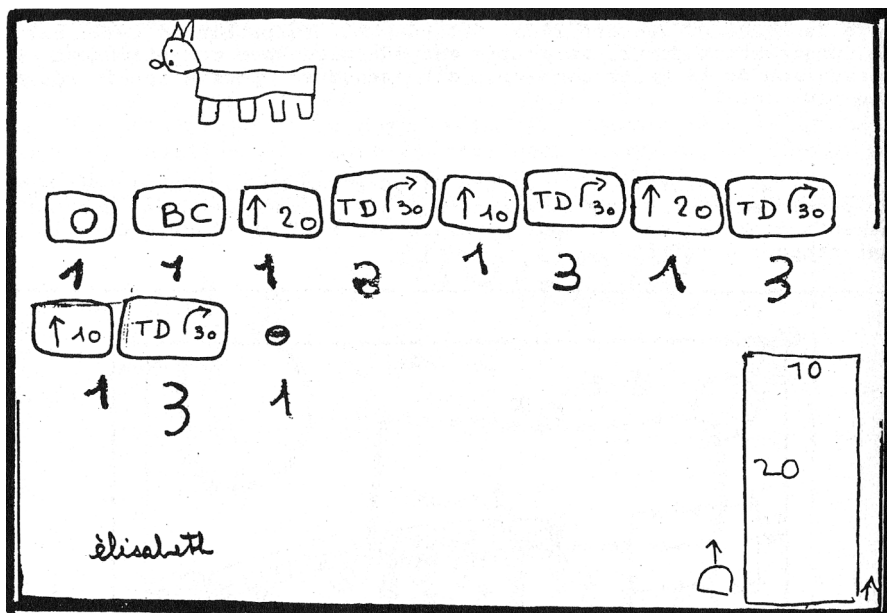 O BC ↑ 20 TD ↱ 30 ↑ 10 TD ↱ 30 ↑ 20 TD ↱ 30
1 1 1 1 3 1 3
↑ 10 TD ↱ 30
1 3 1
10
20
élisabeth